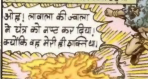 ओह! लावाला की ज्वाला
ने यंत्र को नष्ट कर दिया।
क्योंकि वह मेरी ही शक्ति था।